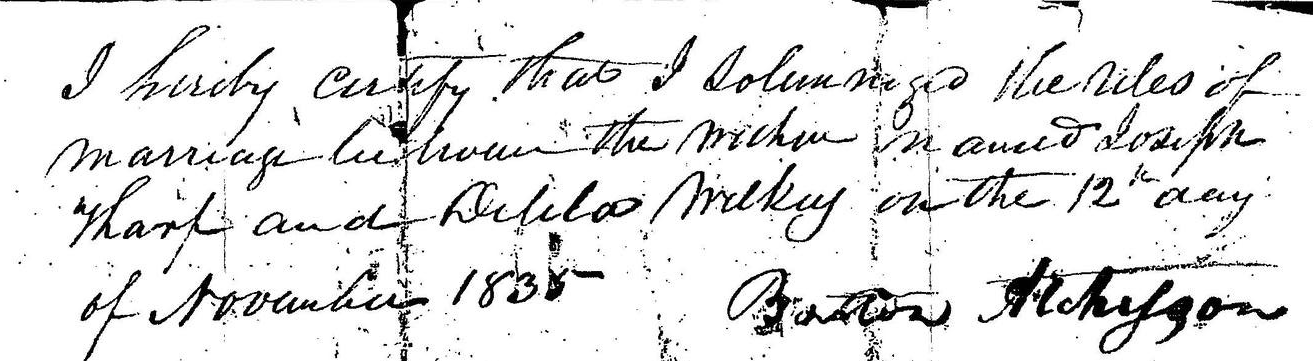 I hereby certify that I solemnized the rites of
marriage between the within named Joseph
Tharp and Delila Wilkey on the 12th day
of November 1835 Barton Atchisson